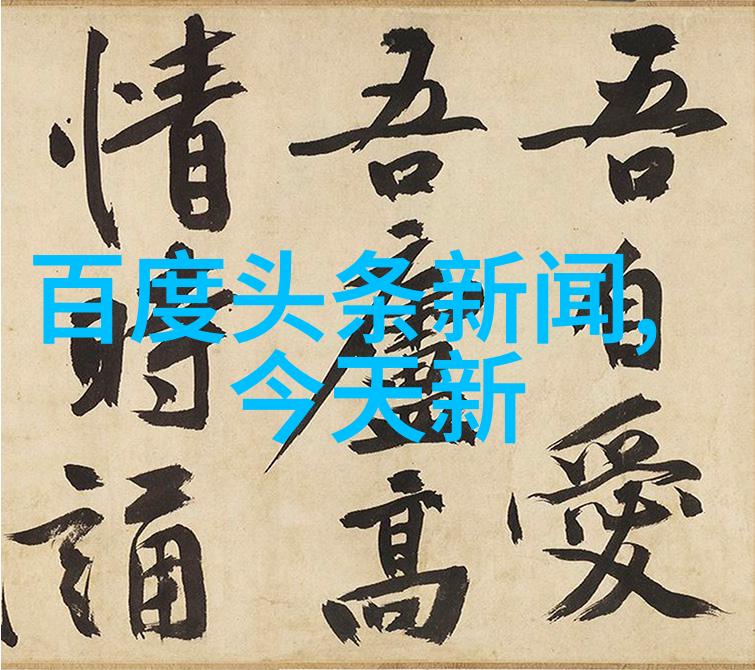 百度头条新闻,
今天新
吾自愛
吾廬高
情時誦